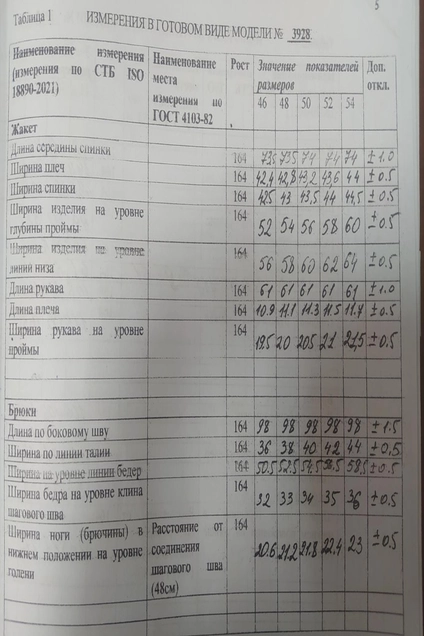 5
Таблица 1 ИЗМЕРЕНИЯ В ГОТОВОМ ВИДЕ МОДЕЛИ № 3928
Наименование измерения (измерения по СТБ ISO 18890-2021) Наименование места измерения по ГОСТ 4103-82 Рост Значение показателей размеров Доп. откл.
46 48 50 52 54
Жакет
Длина середины спинки 164 73,5 73,5 74 74 74 ±1.0
Ширина плеч 164 42,4 42,8 43,2 43,6 44 ±0.5
Ширина спинки 164 42,5 43 43,5 44 44,5 ±0.5
Ширина изделия на уровне глубины проймы 164 52 54 56 58 60 ±0.5
Ширина изделия на уровне линии низа 164 56 58 60 62 64 ±0.5
Длина рукава 164 61 61 61 61 61 ±1.0
Длина плеча 164 10.9 11.1 11.3 11.5 11.7 ±0.5
Ширина рукава на уровне проймы 164 19.5 20 20.5 21 21,5 ±0.5
Брюки
Длина по боковому шву 164 98 98 98 98 98 ±1.5
Ширина по линии талии 164 36 38 40 42 44 ±0,5
Ширина на уровне линии бедер 164 50.5 52.5 54.5 56.5 58.5 ±0.5
Ширина бедра на уровне клина шагового шва 164 32 33 34 35 36 ±0.5
Ширина ноги (брючины) в нижнем положении на уровне голени Расстояние от соединения шагового шва (48см) 164 20.6 21.2 21.8 22.4 23 ±0.5